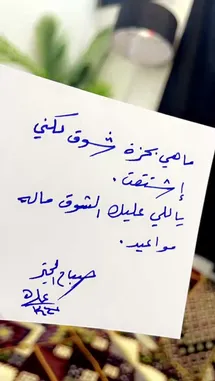 ماهي بحزة شوق لكني
إشتقت .
ياللي عليك الشوق ماله
مواعيد .
صباح الخير